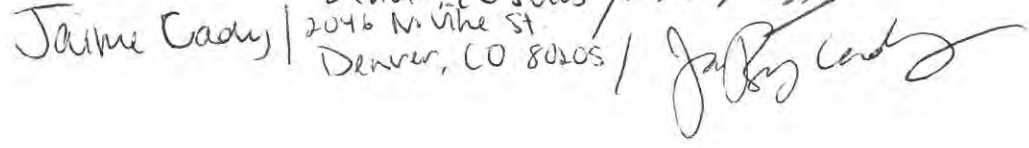 Jaime Cady | 2046 N. Vine St.
Denver, CO 80205 /